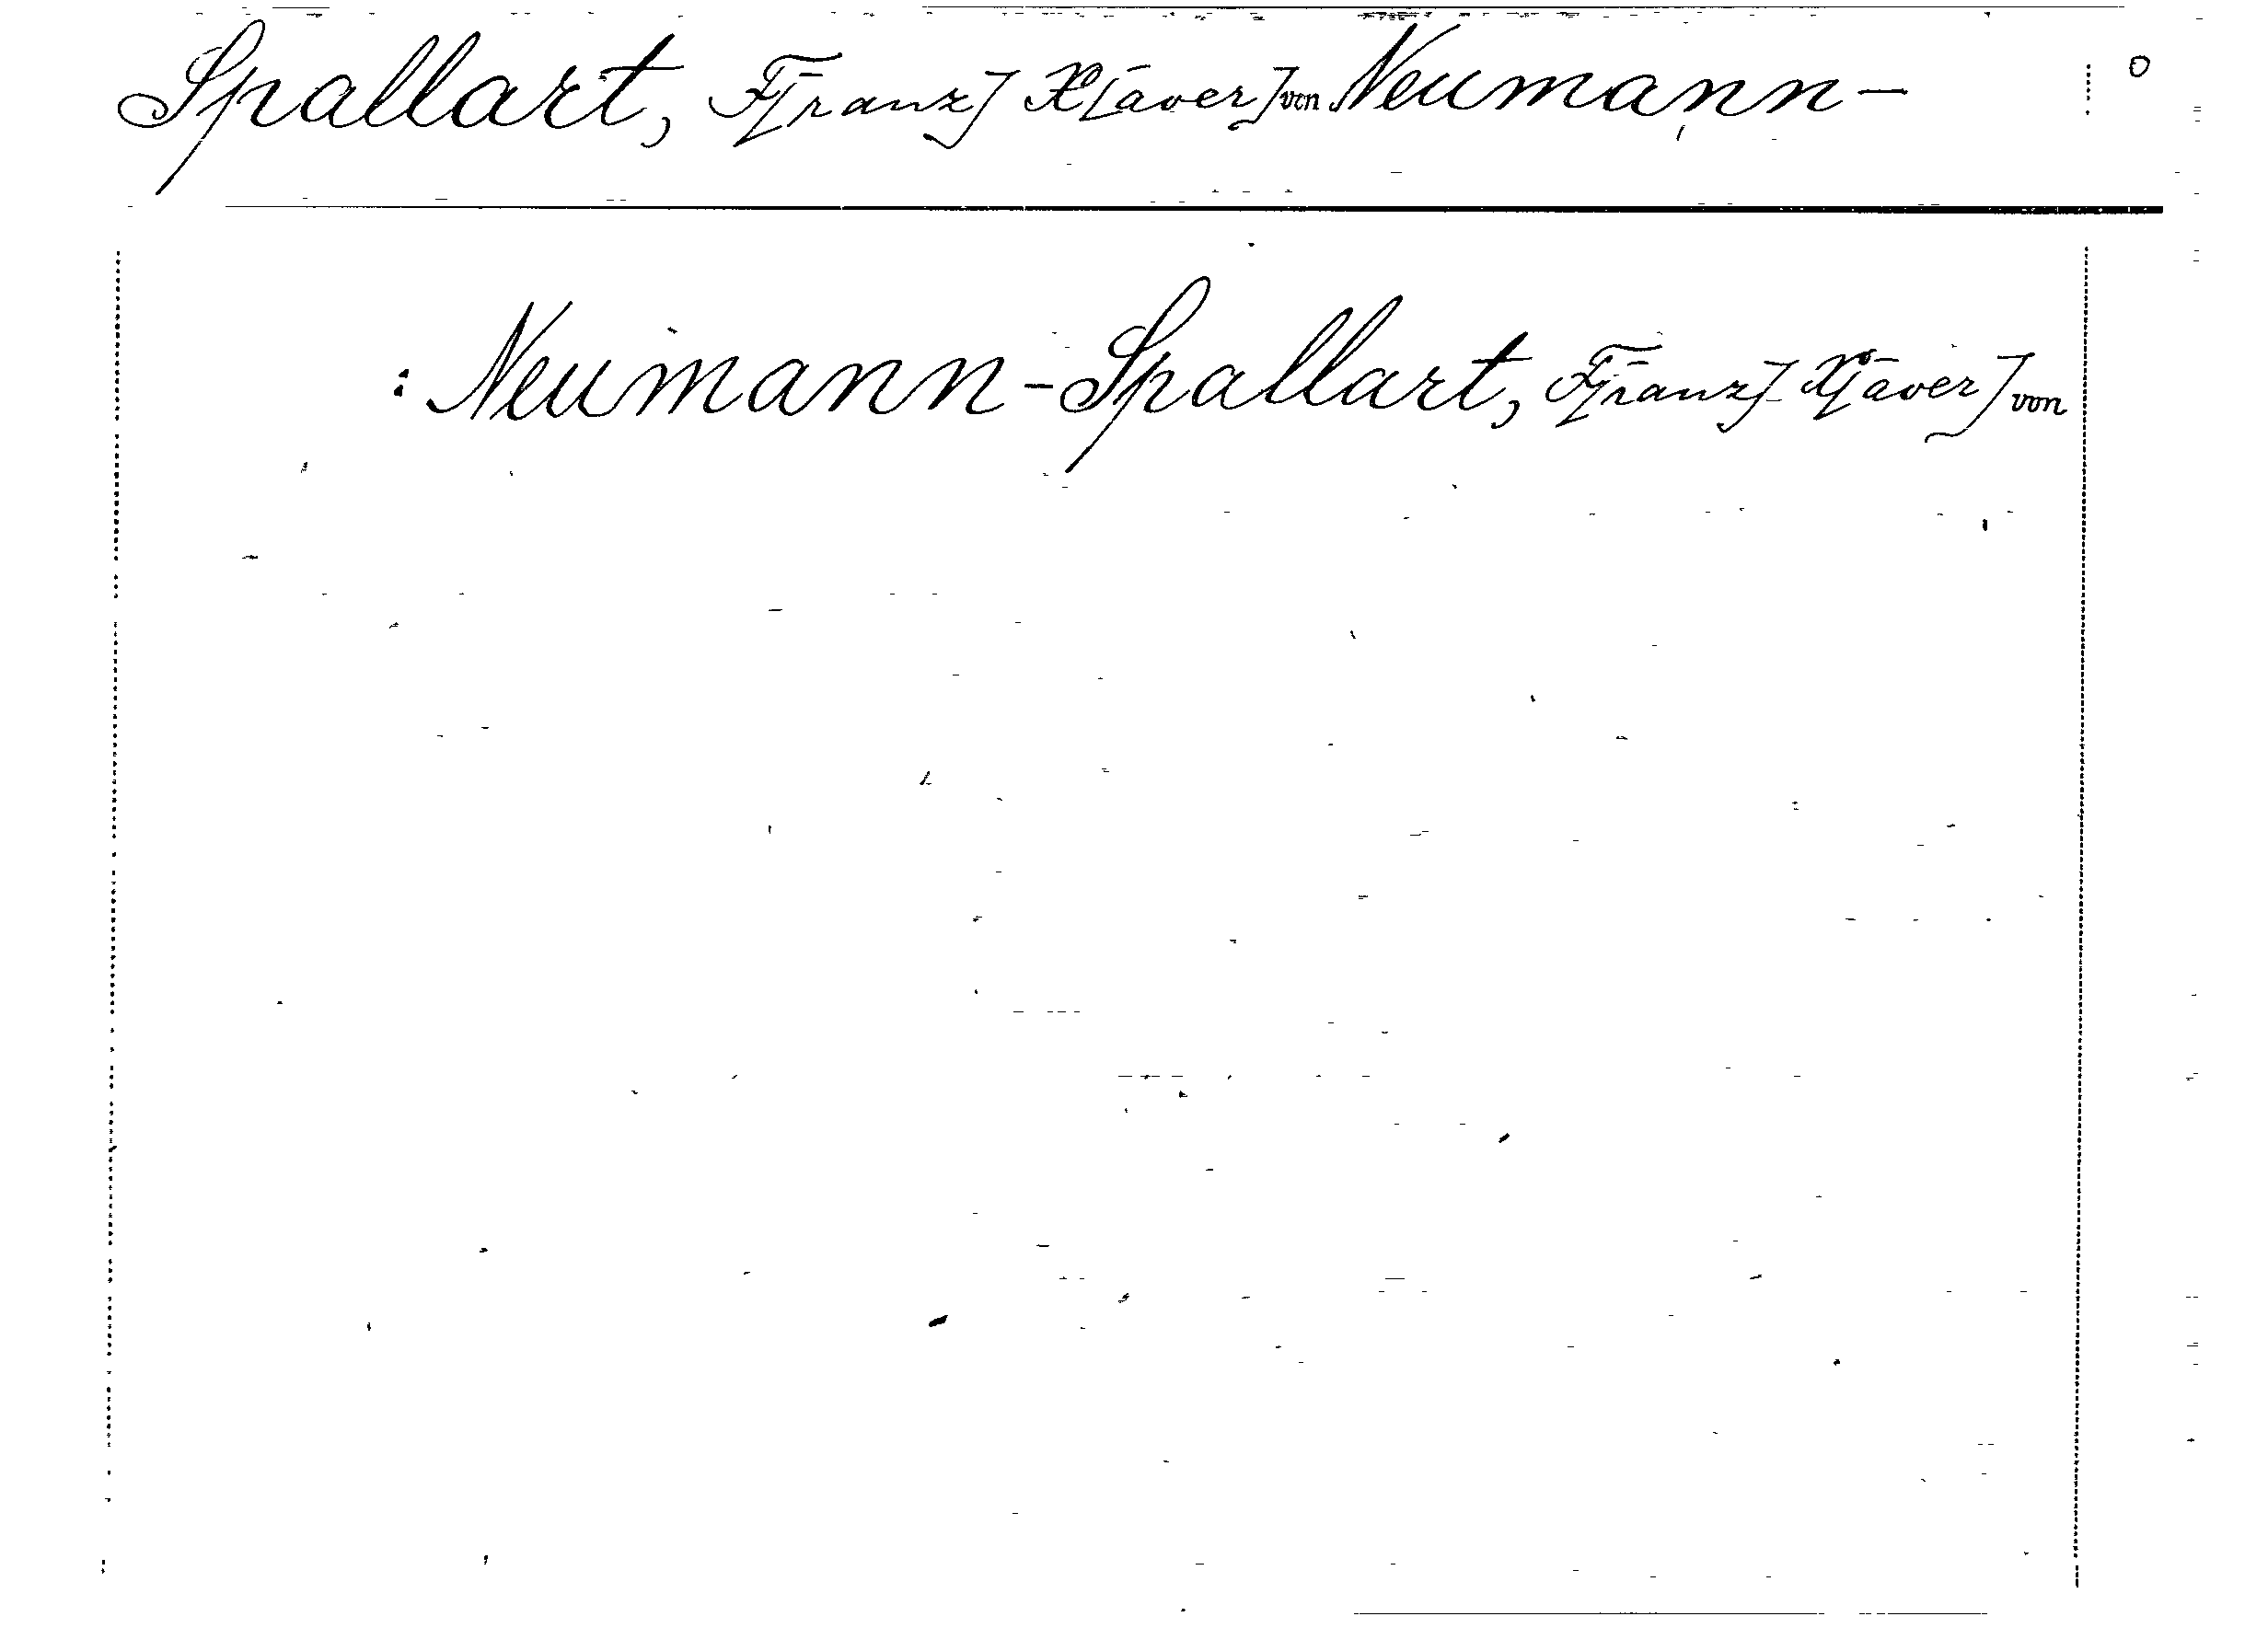 Spallart, F[ranz] X[aver] von Neumann- 0
: Neumann-Spallart, F[ranz] X[aver] von